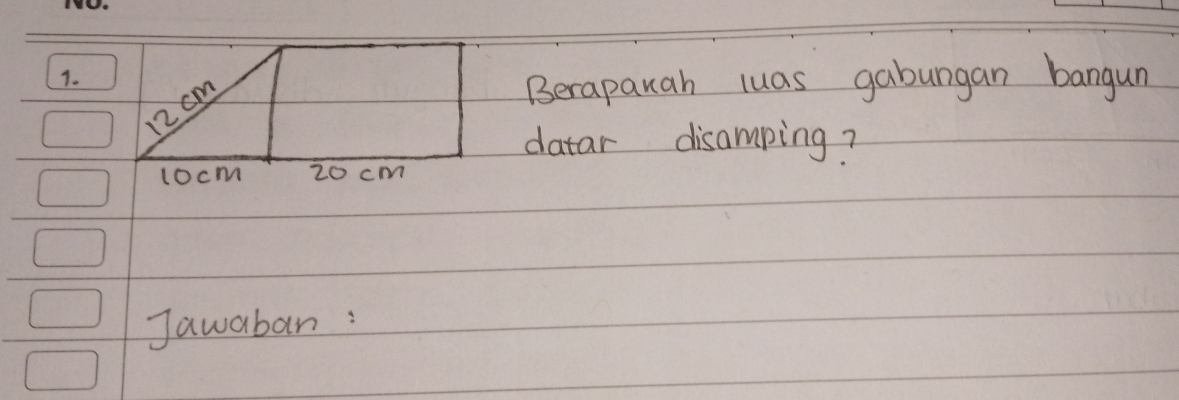 No.
1.
12 cm
10cm
20 cm
Berapakah luas gabungan bangun
datar disamping?
Jawaban :